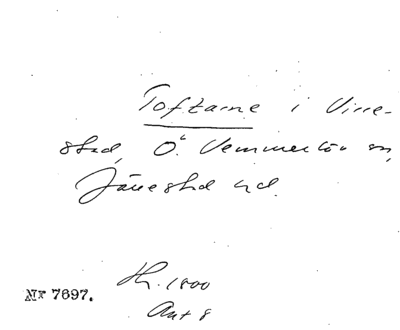 Toftarne i Virre-
stad, Ö. Vemmerlöv sn,
Järrestad hd.
Nr 7697.
Hr. 1800
Ant 8